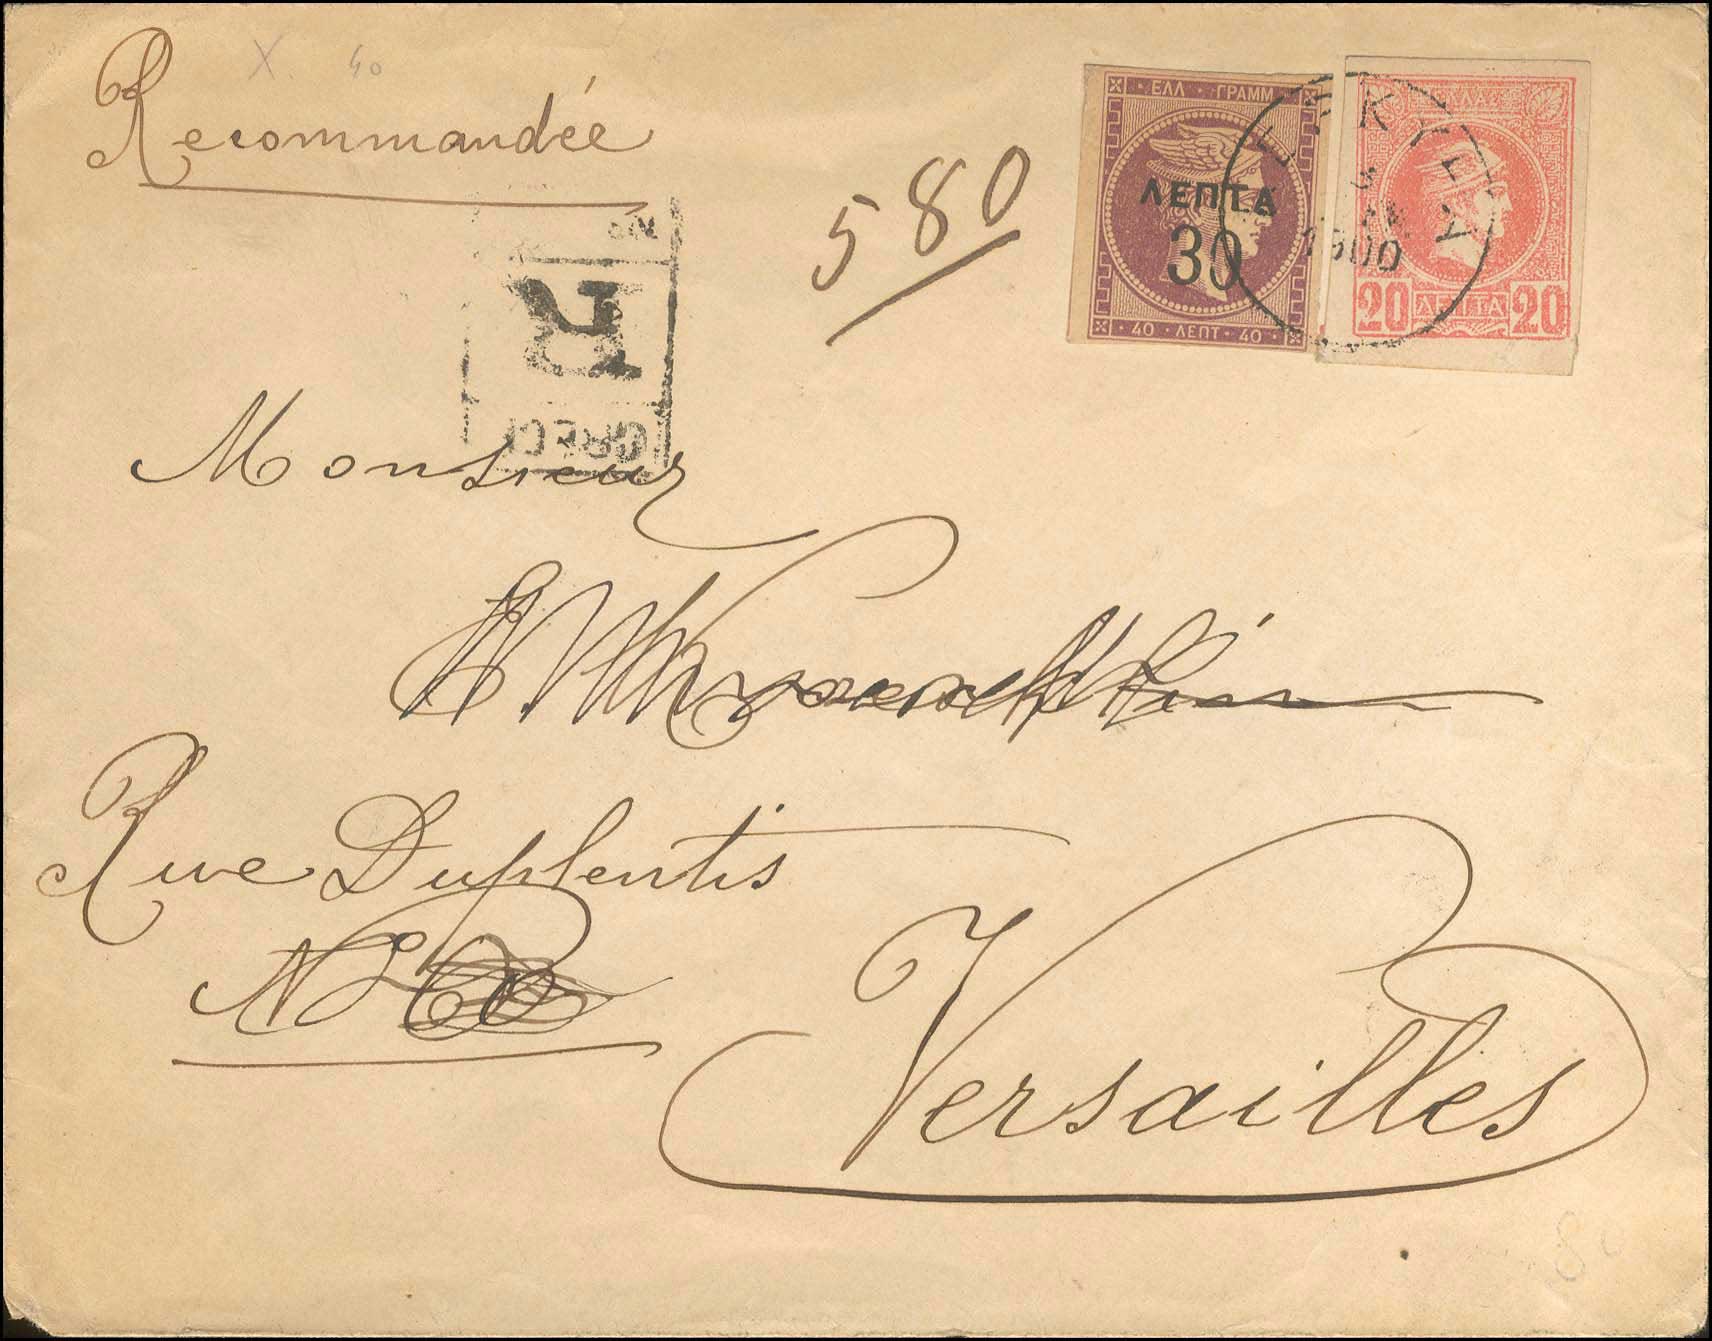 X. 40
Recommandée
580
ΕΛΛ · ΓΡΑΜΜ
ΛΕΠΤΑ
30
40 · ΛΕΠΤ · 40
ΕΛΛΑΣ
20 ΛΕΠΤΑ 20
ΚΕΡΚΥΡΑ
1900
R
Monsieur
Rue Duplentis
Versailles